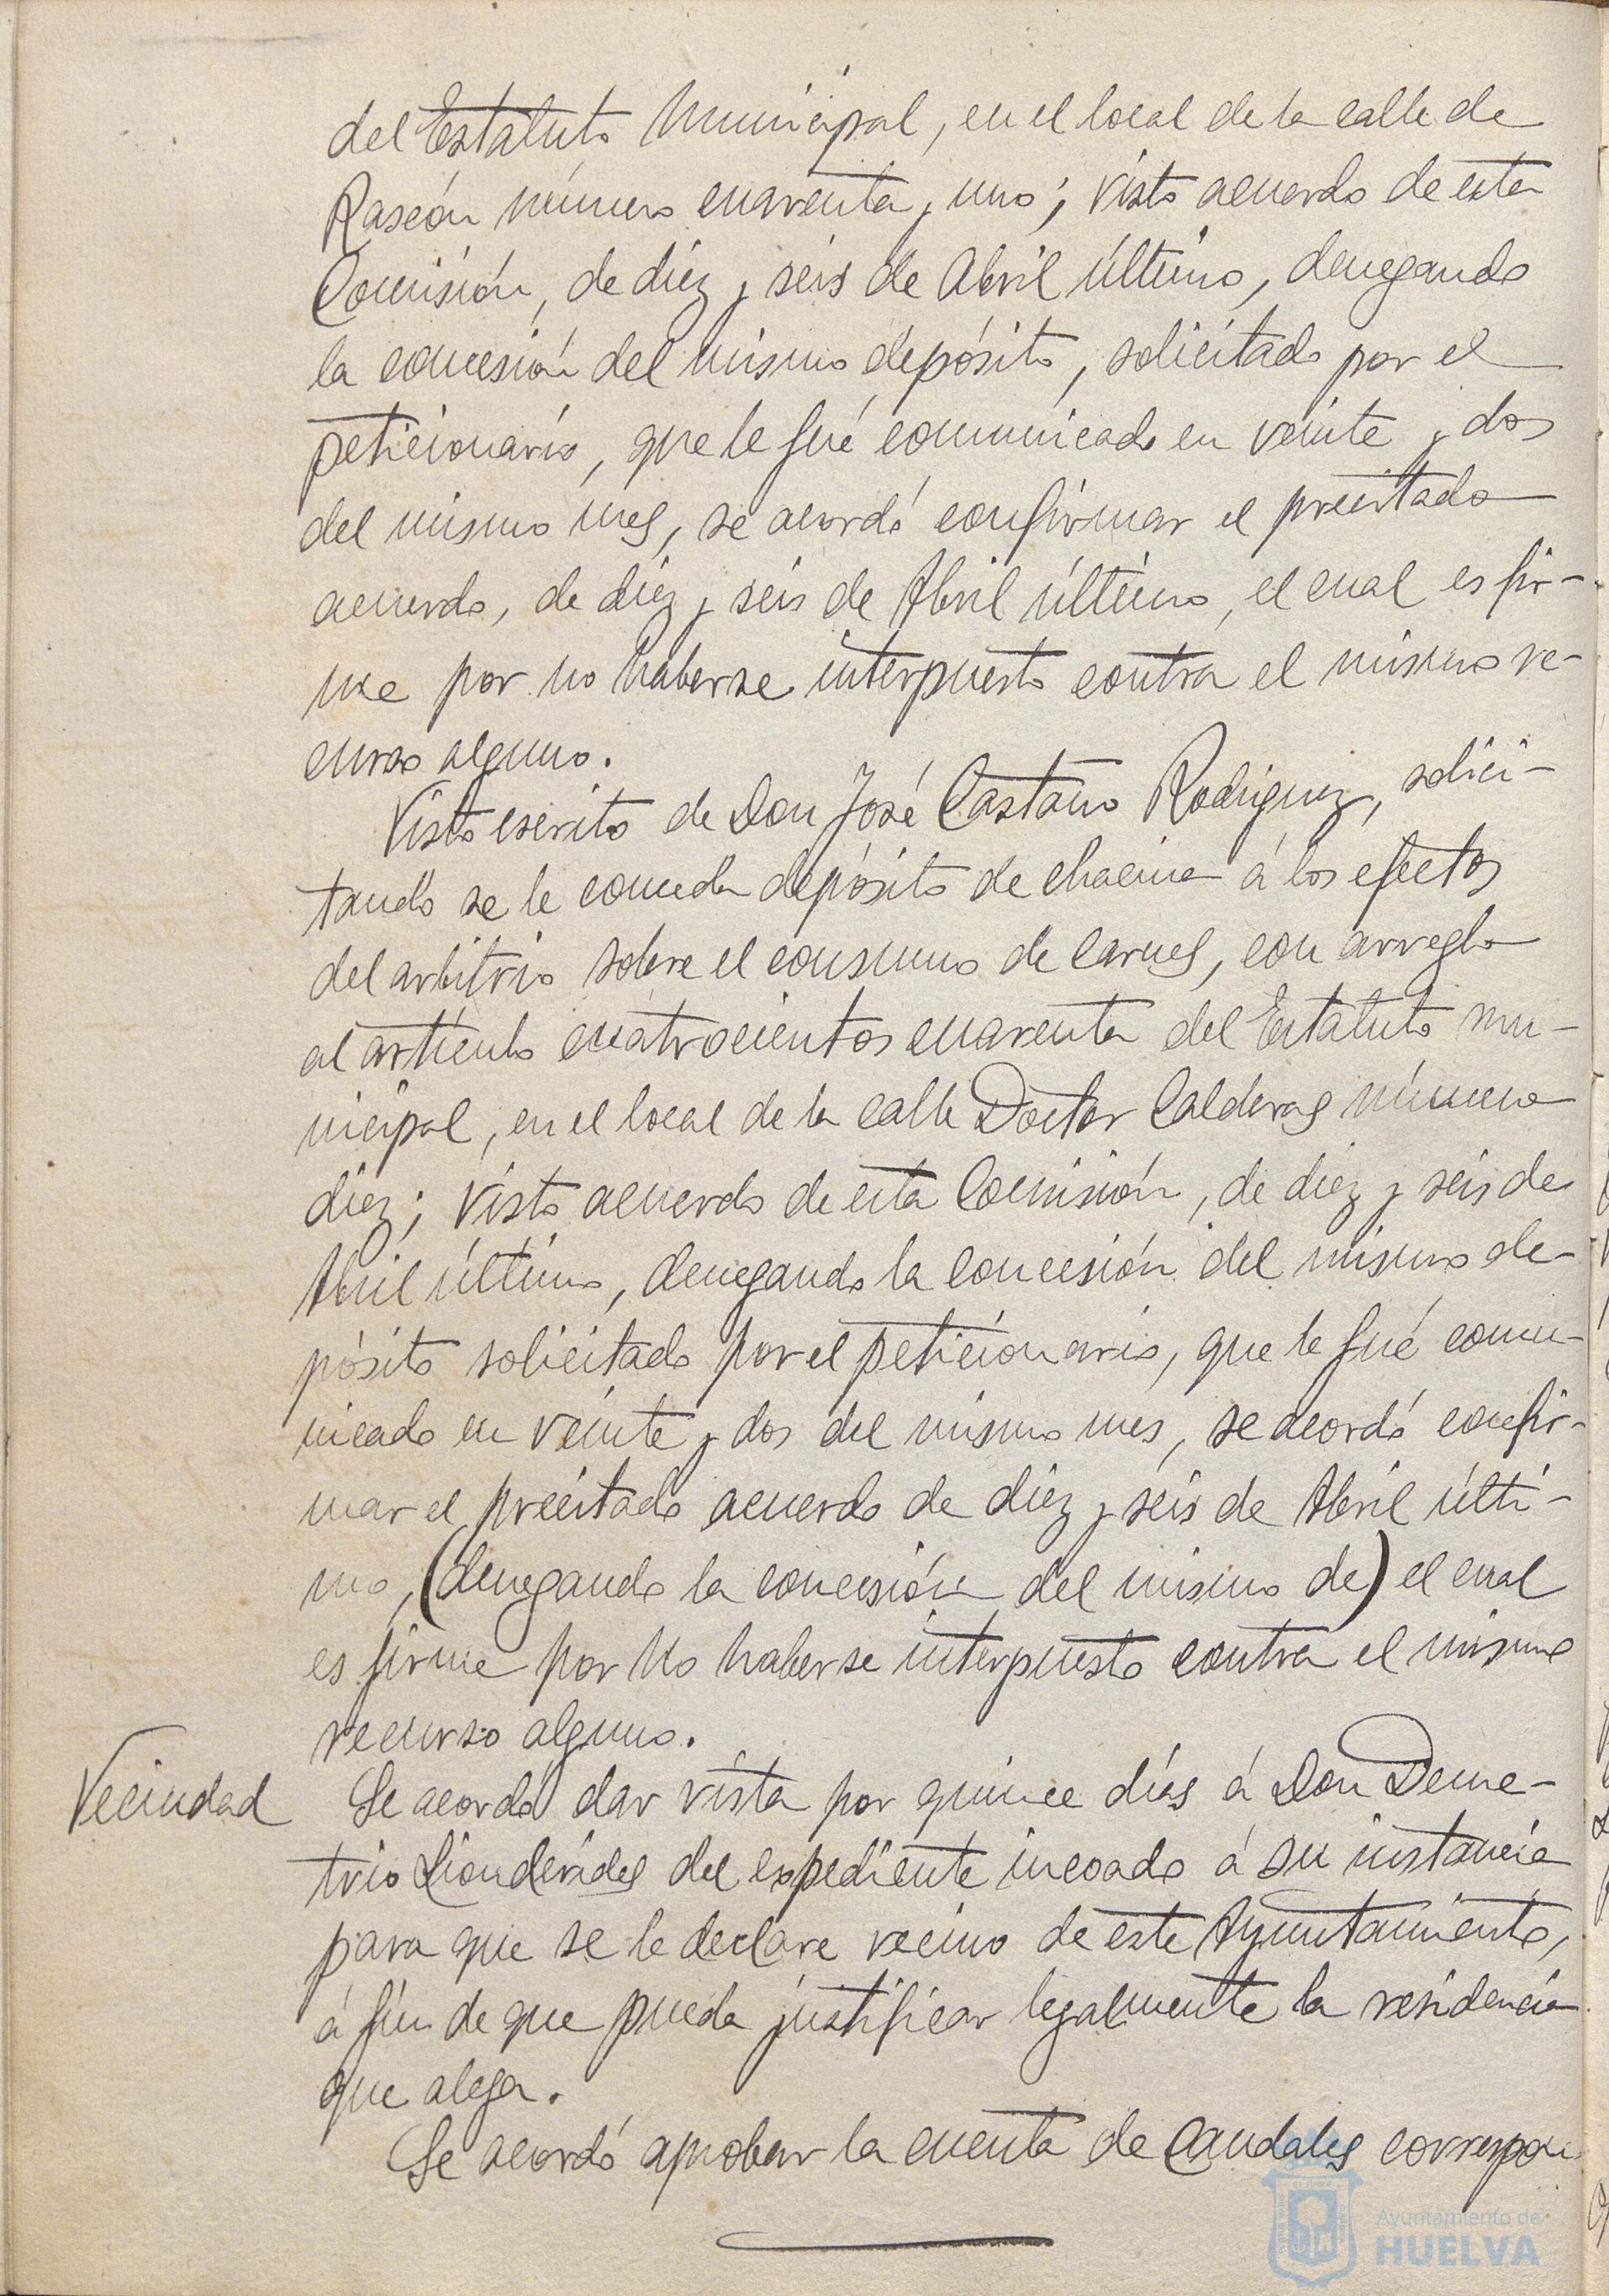 del Estatuto Municipal, en el local de la calle de
Rascón número cuarenta y uno; visto acuerdo de esta
Comisión, de diez y seis de Abril último, denegando
la concesión del mismo depósito, solicitado por el
peticionario, que le fué comunicado en veinte y dos
del mismo mes, se acordó confirmar el precitado
acuerdo, de diez y seis de Abril último, el cual es fir-
me por no haberse interpuesto contra el mismo re-
curso alguno.
Visto escrito de Don José Castaño Rodriguez, solici-
tando se le conceda depósito de chacina á los efectos
del arbitrio sobre el consumo de carnes, con arreglo
al artículo cuatrocientos cuarenta del Estatuto mu-
nicipal, en el local de la calle Doctor Calderas número
diez; visto acuerdo de esta Comisión, de diez y seis de
Abril último, denegando la concesión del mismo de-
pósito solicitado por el peticionario, que le fué comu-
nicado en veinte y dos del mismo mes, se acordó confir-
mar el precitado acuerdo de diez y seis de Abril últi-
mo, (denegando la concesión del mismo de) el cual
es firme por no haberse interpuesto contra el mismo
recurso alguno.
Vecindad Se acordó dar vista por quince días á Don Deme-
trio del expediente incoado á su instancia
para que se le declare vecino de este Ayuntamiento,
á fin de que pueda justificar legalmente la residencia
que alega.
Se acordó aprobar la cuenta de Caudales correspon-
Ayuntamiento de
HUELVA